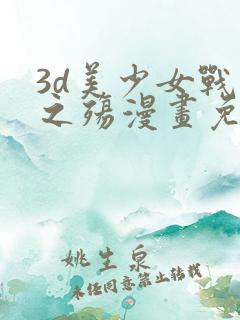 3d美少女戰
之殤漫畫免
姚生泉
未经同意禁止转载